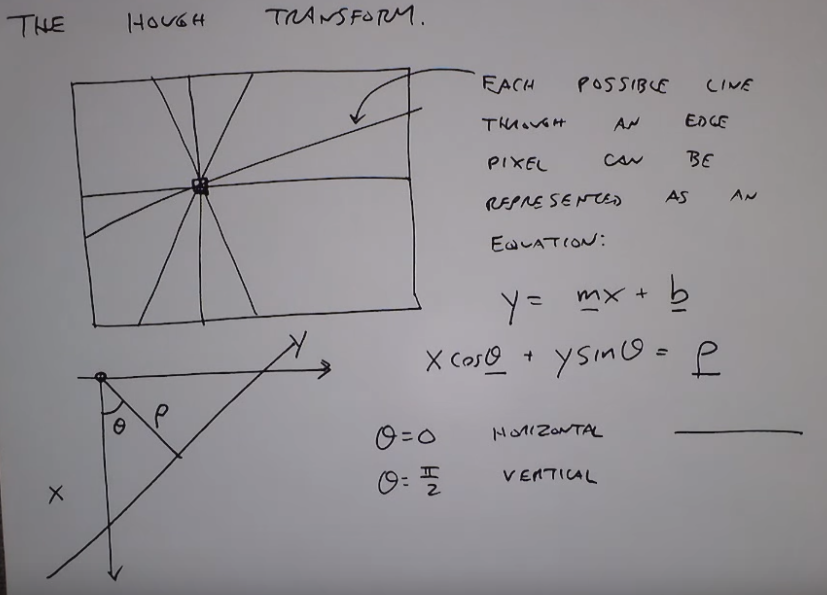 THE HOUGH TRANSFORM.
EACH POSSIBLE LINE
THROUGH AN EDGE
PIXEL CAN BE
REPRESENTED AS AN
EQUATION:
y = mx + b
x cosθ + y sinθ = ρ
y
θ
ρ
x
θ=0 HORIZONTAL
θ= π/2 VERTICAL